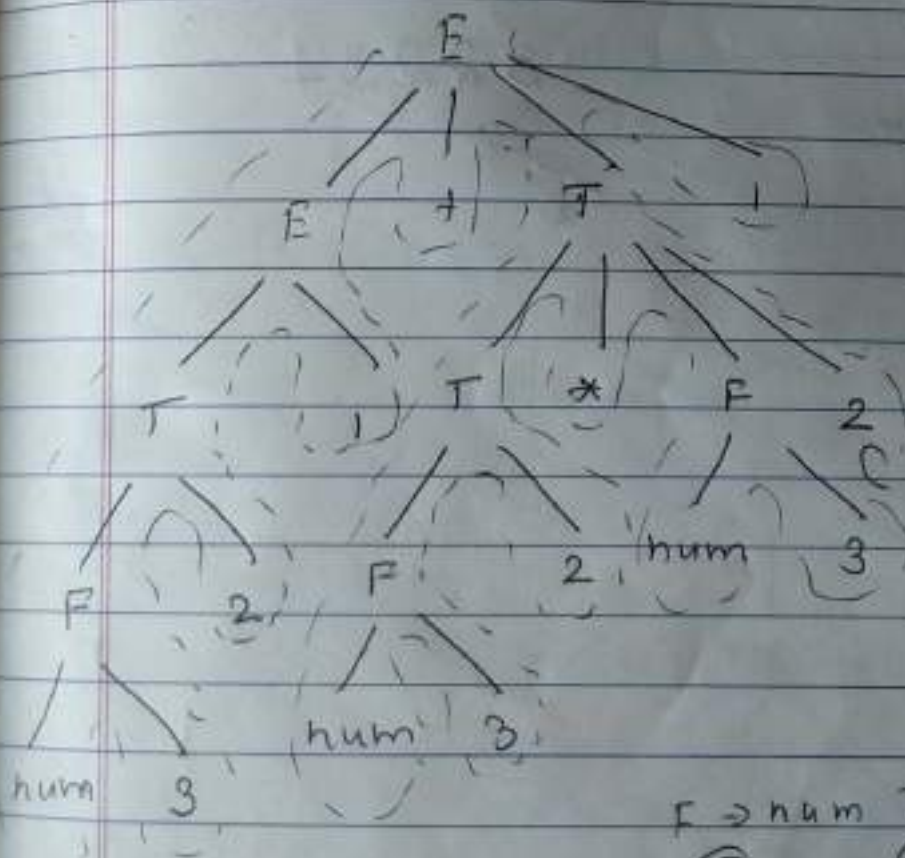 E
E + T 1
T 1 T * F 2
F 2 F 2 num 3
num 3 num 3
F → num